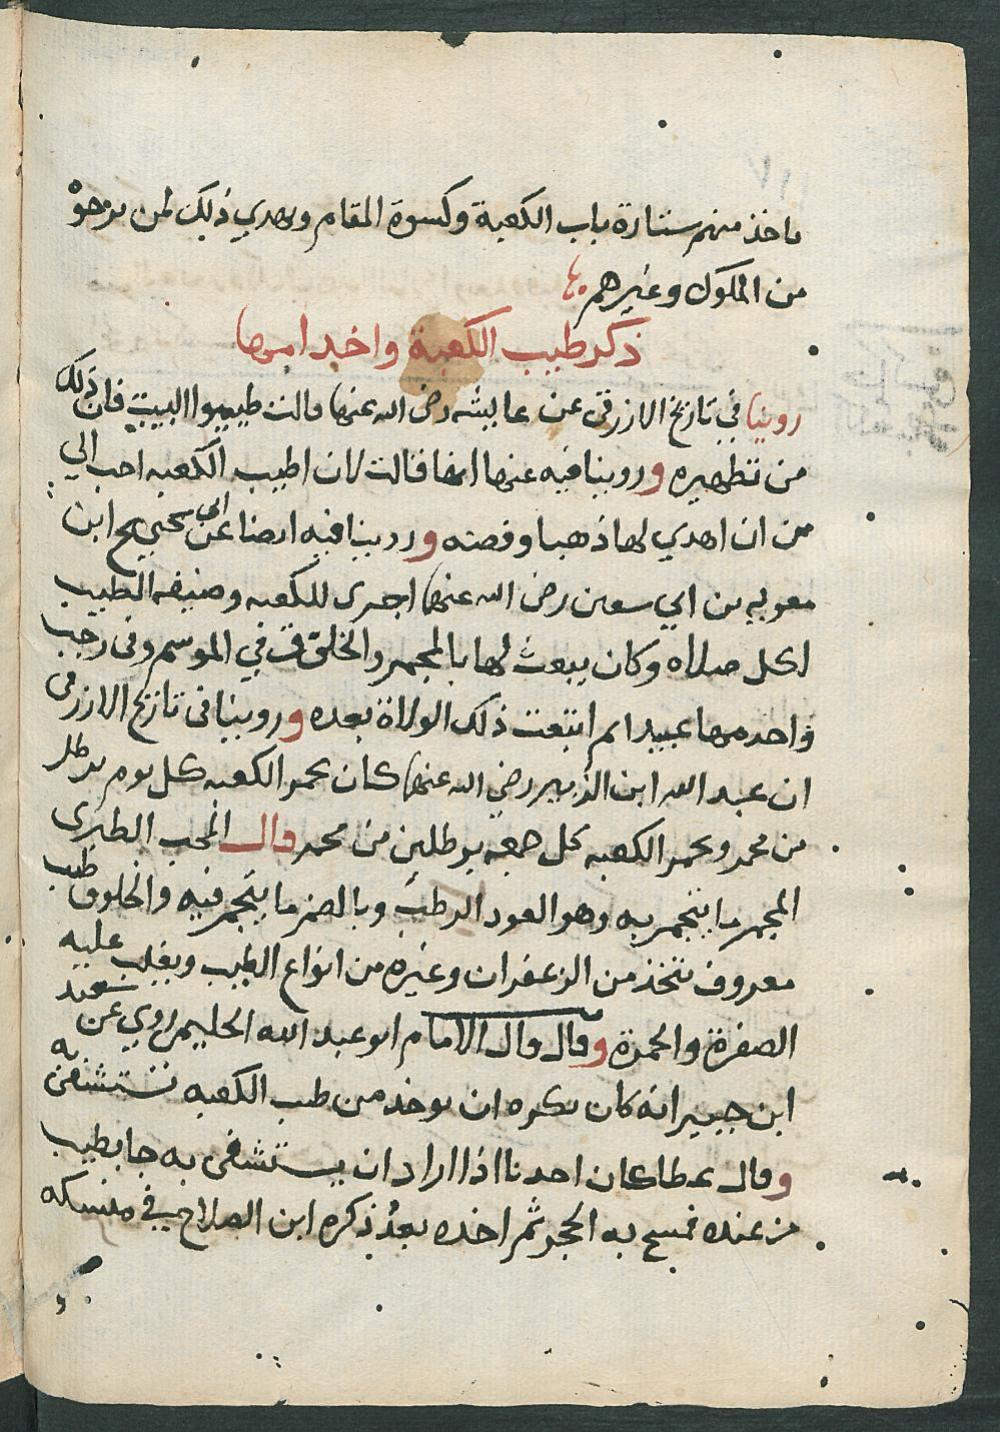 ياخذ منهم ستارة باب الكعبة وكسوة المقام ويهدي ذلك لمن يرجوه
من الملوك وغيرهم
ذكر طيب الكعبة واخدامها
روينا في تاريخ الازرقي عن عايشه رضي الله عنها قالت طيبوا البيت فان ذلك
من تطهيره وروينا فيه عنها انها قالت لان اطيب الكعبه احب الي
من ان اهدي لها ذهبا وفضه وروينا فيه ايضا عن ابي نجيح ان
معويه بن ابي سفين رضي الله عنهما اجرى للكعبه وضيفه الطيب
لكل صلاه وكان يبعث لها بالمجمر والخلوق في الموسم وفي رجب
واخدمها عبيدا ثم اتبعت ذلك الولاة بعده وروينا في تاريخ الازرقي
ان عبد الله ابن الزبير رضي الله عنهما كان يجمر الكعبه كل يوم برطل
من مجمر ويجمر الكعبه كل جمعه برطلين من مجمر قال المحب الطبري
المجمر ما يتجمر به وهو العود الرطب وبالضم ما يتجمر فيه والخلوق طيب
معروف يتخذ من الزعفران وغيره من انواع الطيب ويغلب عليه
الصفرة والحمرة وقال قال الامام ابو عبد الله الحليمي روي عن سعيد
ابن جبير انه كان يكره ان يوخذ من طيب الكعبه يستشفى به
وقال عطا كان احدنا اذا اراد ان يستشفى به جا بطيب
من عنده فمسح به الحجر ثم اخذه بعد ذكره ابن الصلاح في منسكه